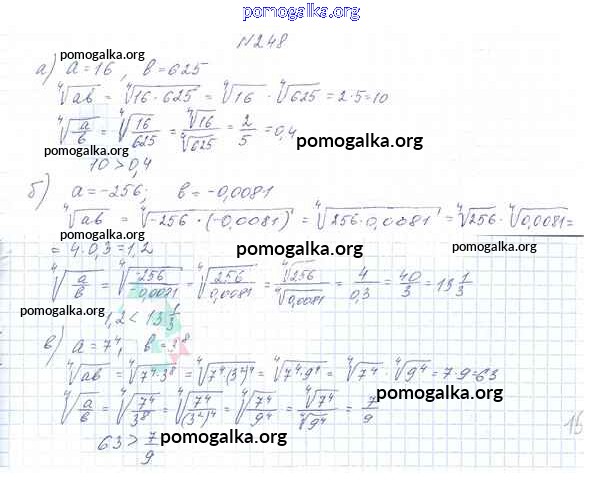 pomogalka.org
№248
pomogalka.org
а) a = 16, в = 625
⁴√ab = ⁴√16·625 = ⁴√16 · ⁴√625 = 2·5 = 10
⁴√a/в = ⁴√16/625 = ⁴√16/⁴√625 = 2/5 = 0,4
pomogalka.org
pomogalka.org
10 > 0,4
pomogalka.org
б) a = -256; в = -0,0081
⁴√ab = ⁴√-256·(-0,0081) = ⁴√256·0,0081 = ⁴√256 · ⁴√0,0081 =
= 4·0,3 = 1,2
pomogalka.org
⁴√a/в = ⁴√-256/-0,0081 = ⁴√256/0,0081 = ⁴√256/⁴√0,0081 = 4/0,3 = 40/3 = 13 1/3
pomogalka.org
1,2 < 13 1/3
pomogalka.org
в) a = 7⁴, в = 3⁸
⁴√ab = ⁴√7⁴·3⁸ = ⁴√7⁴(3²)⁴ = ⁴√7⁴·9⁴ = ⁴√7⁴ · ⁴√9⁴ = 7·9 = 63
pomogalka.org
⁴√a/в = ⁴√7⁴/3⁸ = ⁴√7⁴/(3²)⁴ = ⁴√7⁴/9⁴ = ⁴√7⁴/⁴√9⁴ = 7/9
63 > 7/9
pomogalka.org
pomogalka.org